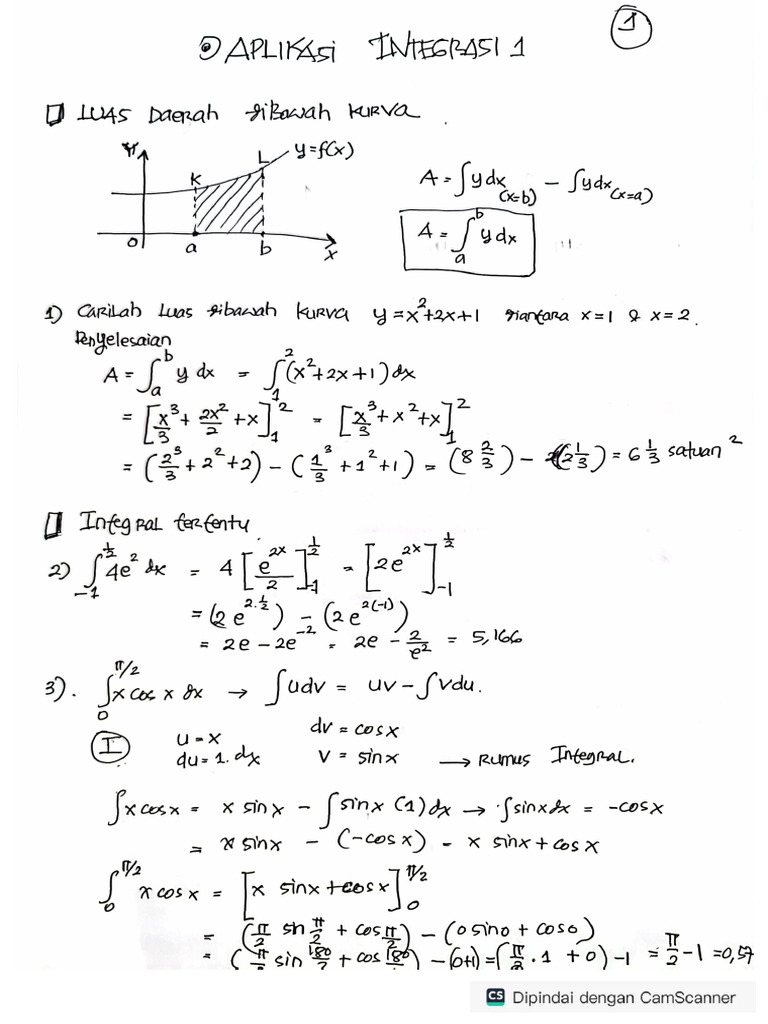 1
APLIKASI INTEGRASI 1
LUAS DAERAH dibawah KURVA.
y=f(x)
K
L
0
a
b
x
A = ∫ydx(x=b) - ∫ydx(x=a)
A = ∫_a^b ydx
1) Carilah Luas dibawah KURVA y=x²+2x+1 diantara x=1 & x=2.
Penyelesaian
A = ∫_a^b y dx = ∫_1^2 (x²+2x+1) dx
= [x³/3 + 2x²/2 + x]_1^2 = [x³/3 + x² + x]_1^2
= (2³/3 + 2² + 2) - (1³/3 + 1² + 1) = (8 2/3) - (2 1/3) = 6 1/3 satuan²
Integral tertentu
2) ∫_{-1}^{1/2} 4e² dx = 4 [e^{2x}/2]_{-1}^{1/2} = [2e^{2x}]_{-1}^{1/2}
= (2e^{2·1/2}) - (2e^{2(-1)})
= 2e - 2e^{-2} = 2e - 2/e² = 5,166
3). ∫_0^{π/2} x cos x dx → ∫udv = uv - ∫vdu.
I
u = x
dv = cos x
du = 1. dx
v = sin x → Rumus Integral.
∫x cos x = x sin x - ∫sin x (1) dx → ∫sin x dx = -cos x
= x sin x - (-cos x) = x sin x + cos x
∫_0^{π/2} x cos x = [x sin x + cos x]_0^{π/2}
= (π/2 sin π/2 + cos π/2) - (0 sin 0 + cos 0)
= (π/2 sin 180/2 + cos 180/2) - (0+1) = (π/2 . 1 + 0) - 1 = π/2 - 1 = 0,57
CS Dipindai dengan CamScanner